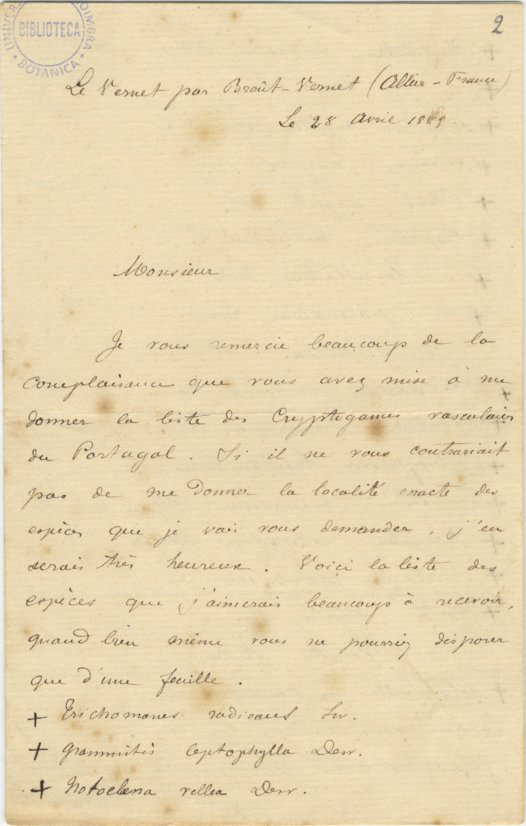 2
UNIVER
OIMBRA
BIBLIOTECA
BOTANICA
Le Vernet par Broût-Vernet (Allier - France)
Le 28 Avril 188
Monsieur
Je vous remercie beaucoup de la
complaisance que vous avez mise à me
donner la liste des Cryptogames vasculaires
du Portugal. Si il ne vous contrariait
pas de me donner la localité exacte des
espèces que je vais vous demander, j'en
serais très heureux. Voici la liste des
espèces que j'aimerais beaucoup à recevoir,
quand bien même vous ne pourriez disposer
que d'une feuille.
+ Trichomanes radicans Sw.
+ Grammitis leptophylla Desv.
+ Notoclena vellea Desv.